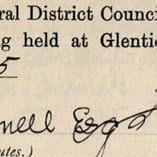 ral District Counci
ng held at Glenti
5
nell Esq
utes.)